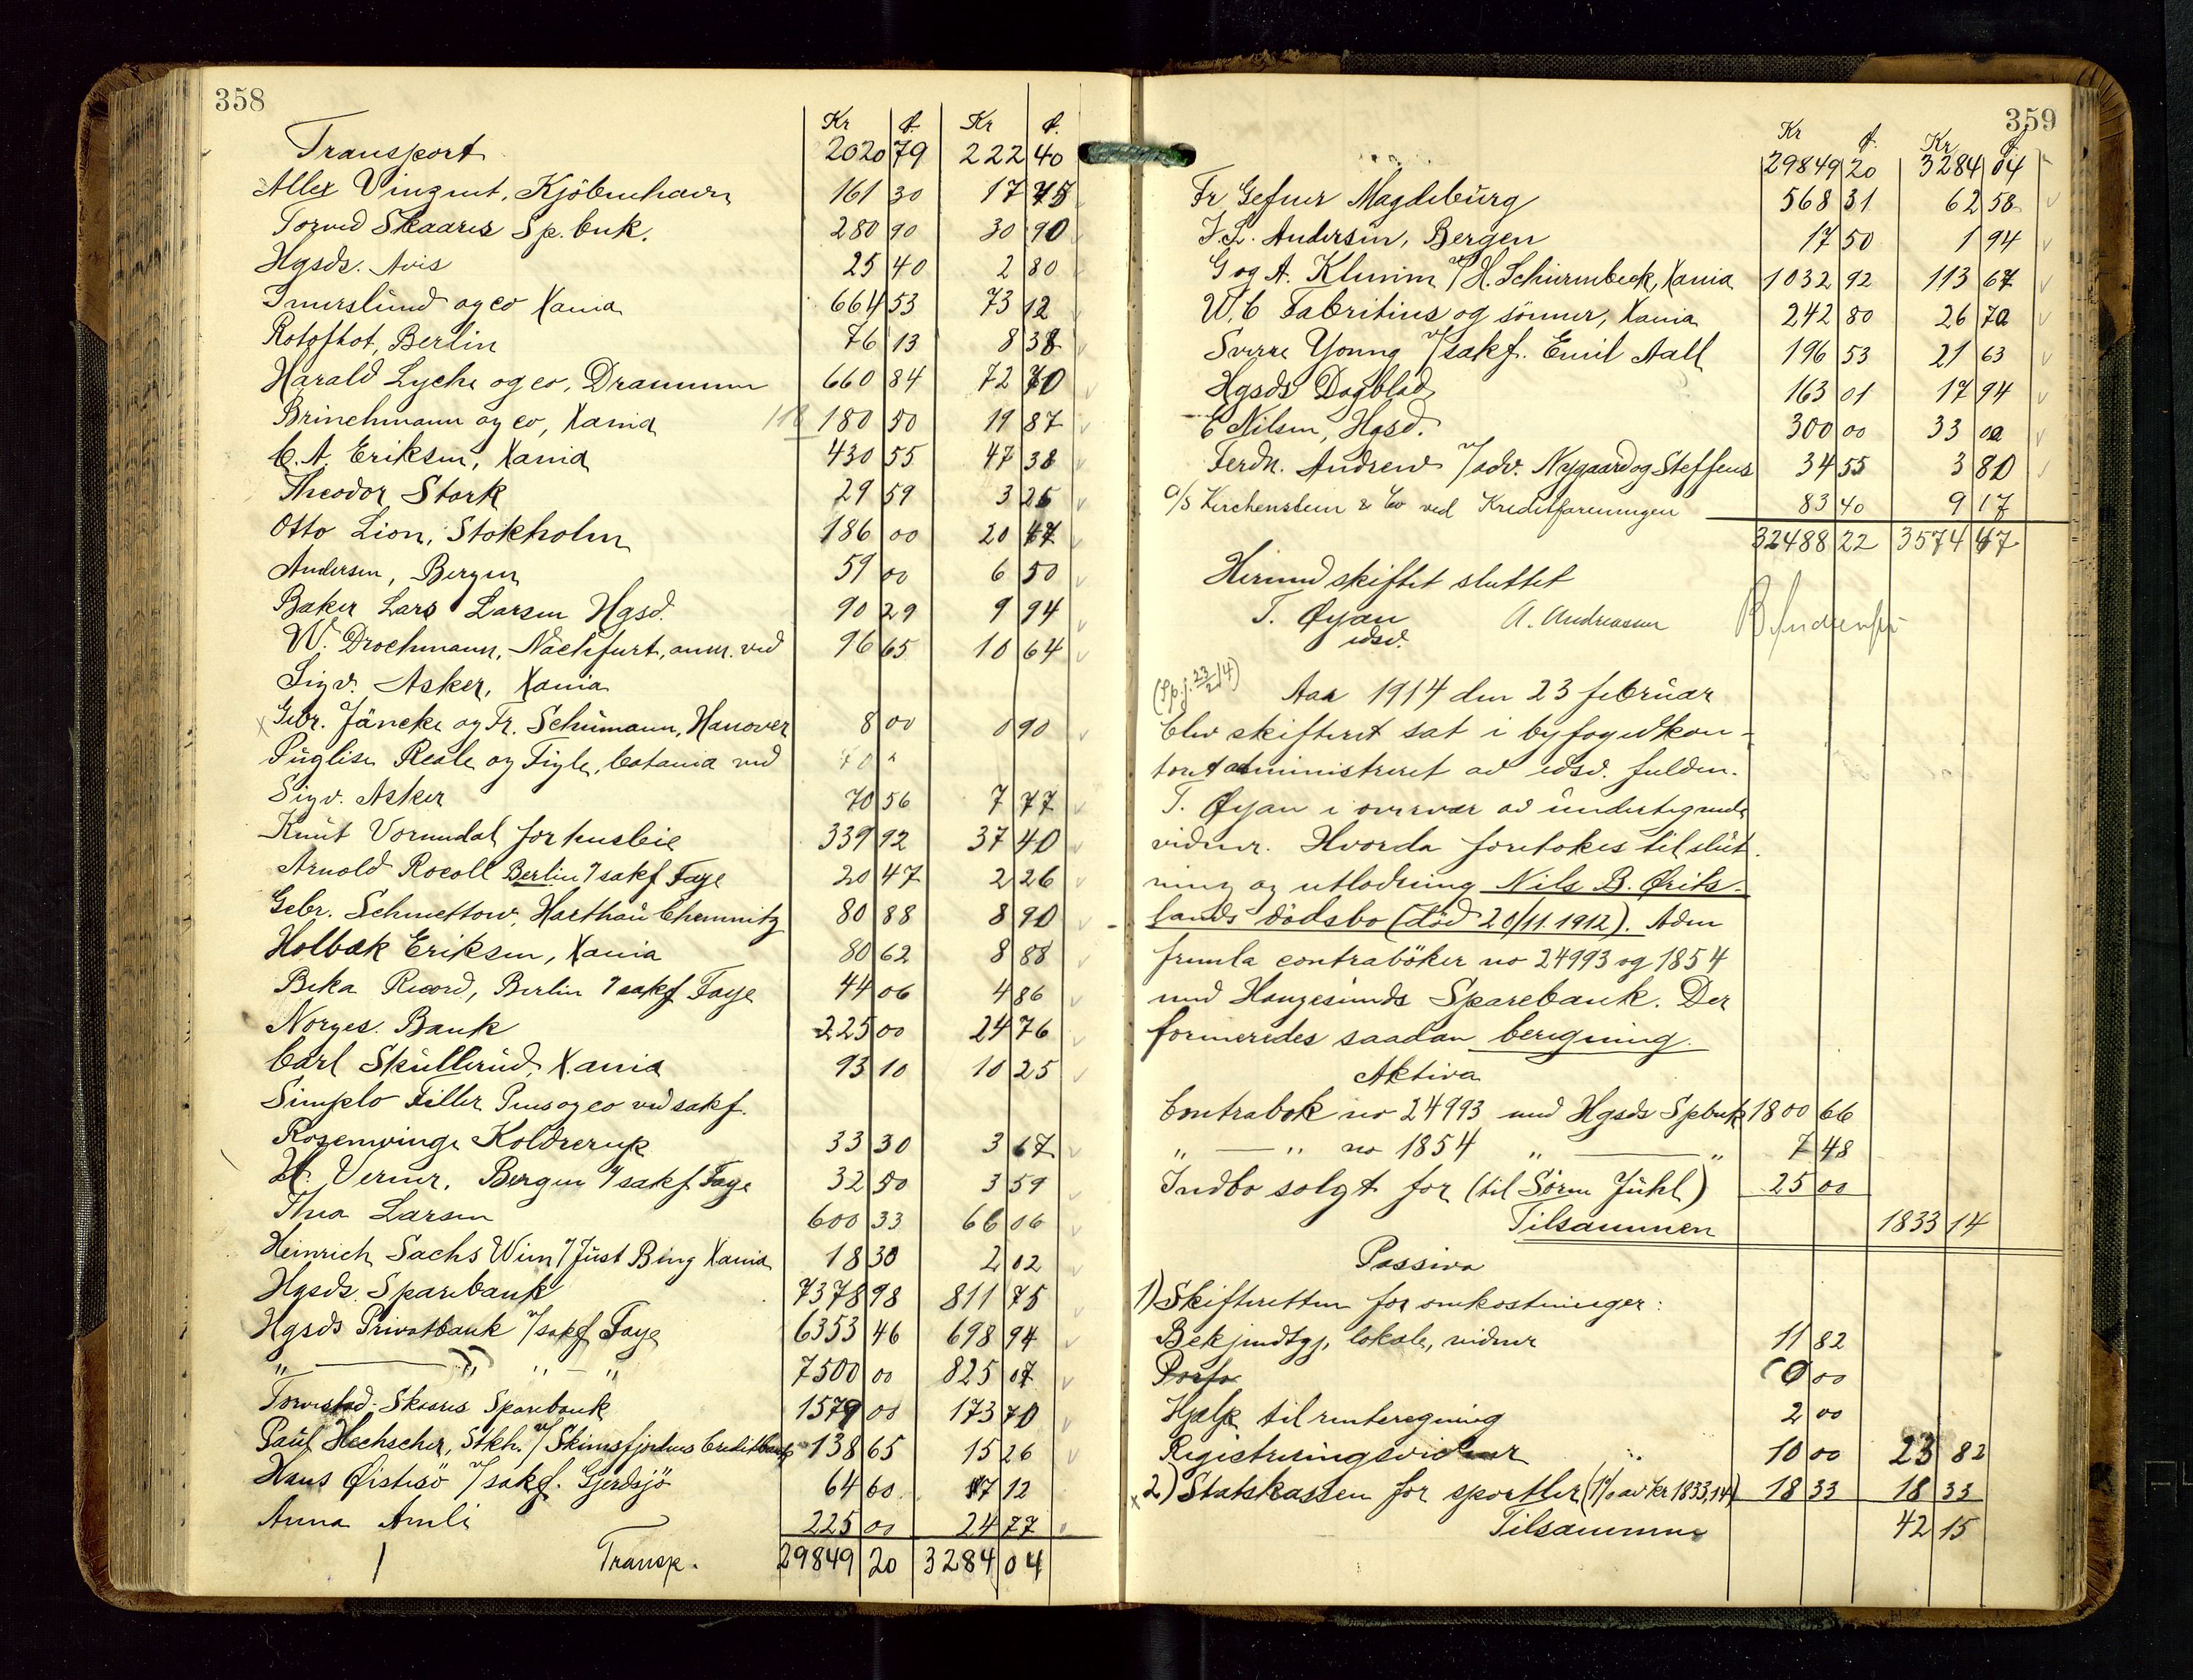 358
Kr ø. Kr ø.
Transport 2020 79 222 40
Allex Vingmt, Kjöbenhavn 161 30 17 75
Torved Skaares Sp.bnk. 280 90 30 90
Hgsds. Avis 25 40 2 80
Imerslund og co Xania 664 53 73 12
Rotofhot, Berlin 76 13 8 38
Harald Lyche og co, Drammen 660 84 72 70
Brinchmann og co, Xania 180 50 19 87
C. A. Eriksen, Xania 430 55 47 38
Theodor Stork 29 59 3 26
Otto Lion, Stokholm 186 00 20 47
Andersen, Bergen 59 00 6 50
Baker Lars Larsen Hgsd. 90 29 9 94
W. Drochmann, Nachfurt, anm. ved 96 65 10 64
Sigv. Asker, Xania
Gebr. Jäncke og Fr. Schümann, Hanover 8 00 0 90
Puglisi Reale og Figle, Catania ved
Sigv. Asker 70 56 7 77
Knut Vormdal for husleie 339 92 37 40
Arnold Rocoll Berlin v/ sakf Faye 20 47 2 26
Gebr. Schmettow, Harthau Chemnitz 80 88 8 90
Holbæk Eriksen, Xania 80 62 8 88
Beka Record, Berlin v/ sakf Faye 44 06 4 86
Norges Bank 225 00 24 76
Carl Skullerud, Xania 93 10 10 25
Simplo Filler Pens og co ved sakf.
Rosenvinge Koldrerup 33 30 3 67
H. Verner, Bergen v/ sakf Faye 32 50 3 59
Thea Larsen 600 33 66 06
Heinrich Sachs Wien v/ Just Bing Xania 18 30 2 02
Hgsds. Sparebank 7378 98 811 75
Hgsds Privatbank v/ sakf Faye 6353 46 698 94
" — " " — " 7500 00 825 07
Torvestad-Skaares Sparebank 1579 00 173 70
Paul Hechscher, Stkh. v/ Skiensfjordens Creditbank 138 65 15 26
Hans Øistesö v/ sakf. Gjerdsjö 64 60 7 12
Anna Amli 225 00 24 77
Transp. 29849 20 3284 04
359
Kr ø. Kr ø.
29849 20 3284 04
Fr. Gefner Magdeburg 568 31 62 58
J. L. Andersen, Bergen 17 50 1 94
G og A. Klemm v/ H. Schirmbeck, Xania 1032 92 113 67
W. C Fabritius og sönner, Xania 242 80 26 70
Sverre Young v/ sakf. Emil Aall 196 53 21 63
Hgsds Dagblad 163 01 17 94
E Nilsen, Hgsd. 300 00 33 00
Ferdn. Andrew v/ adv. Nygaard og Steffens 34 55 3 80
A/S Kirchenstein & Co ved Kreditforeningen 83 40 9 17
32488 22 3574 47
Hermed skiftet sluttet
T. Øyan A. Andreassen B. Andersen
edsv.
(Sp.j. 23/2 14)
Aar 1914 den 23 februar
blev skifteret sat i byfogedkon-
toret administreret av edsv. fuldm.
T. Øyan i overvær av undertegnede
vidner. Hvorda foretokes til slut-
ning og utlodning Nils B. Ørits-
lands dödsbo (död 20/11. 1912). Adm
fremla contraböker no 24993 og 1854
med Haugesunds Sparebank. Der
formeredes saadan beregning.
Aktiva
Contrabok no 24993 med Hgsds Spbnk 1800 66
" — " no 1854 " — " 7 48
Indbo solgt for (til Sören Juhl) 25 00
Tilsammen 1833 14
Passiva
1) Skifteretten for omkostninger:
Bekjendtgj, lokale, vidner 11 82
Porto 00
Hjelp til renteregning 2 00
Registreringsvidner 10 00 23 82
x 2) Statskassen for sportler (1% av kr 1833,14) 18 33 18 33
Tilsammen 42 15